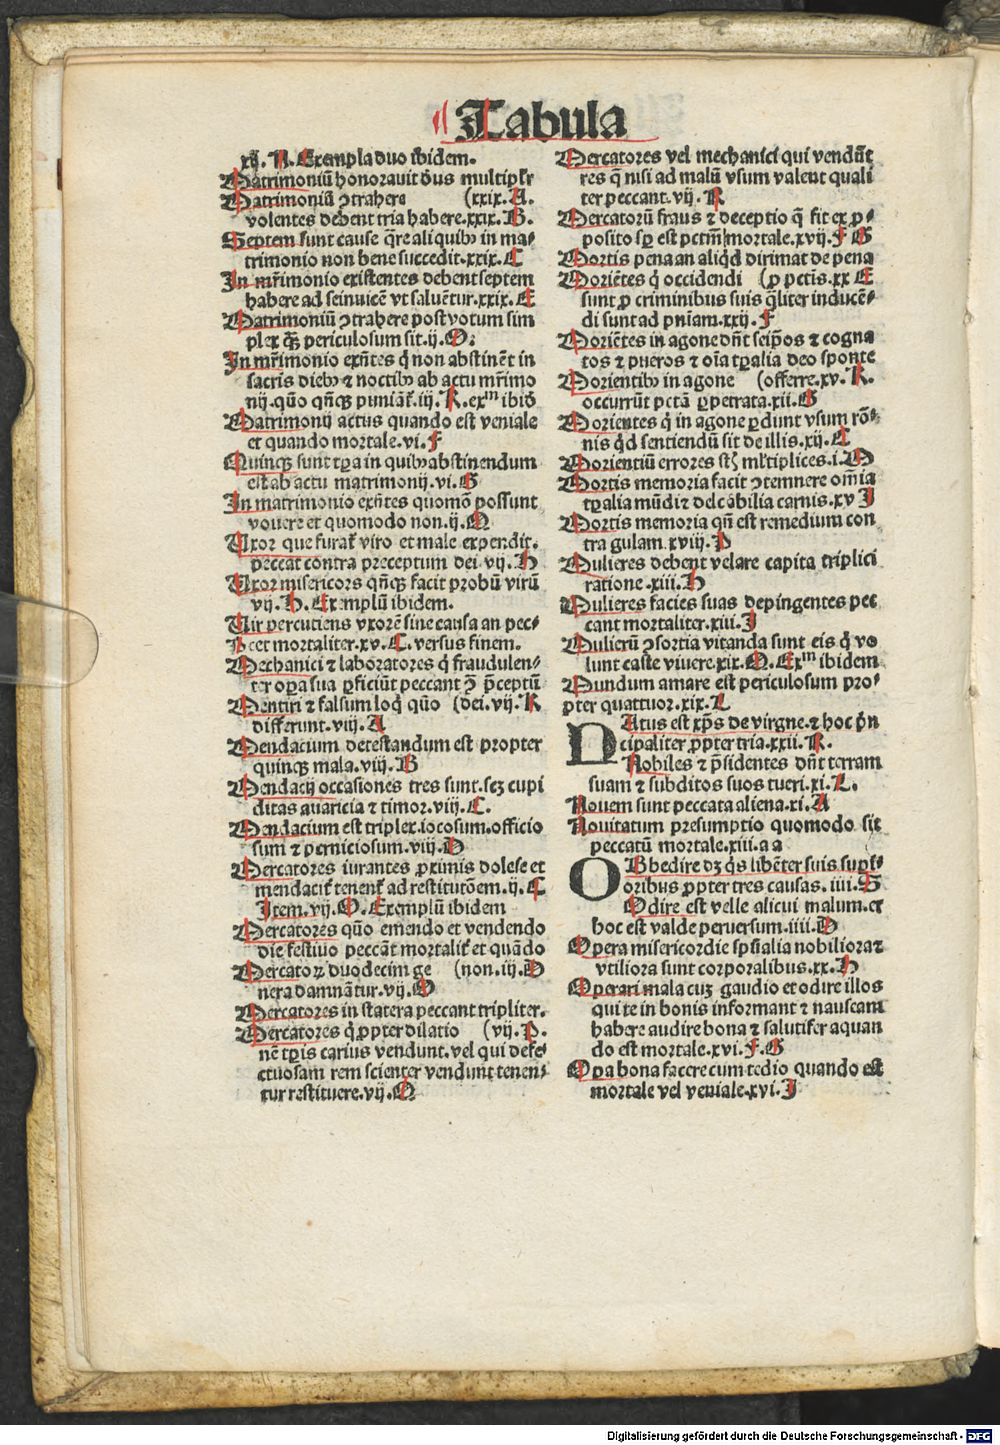 Tabula
xij. N. Exempla duo ibidem.
Matrimoniū honorauit dn̄s multiplr̄
Matrimoniū ꝯtrahere (xxix. A.
volentes debent tria habere.xxix. B.
Septem sunt cause q̄re aliquibꝰ in ma⸗
trimonio non bene succedit.xxix. C
In mr̄imonio existentes debent septem
habere ad seinuicē vt saluētur.xxix. E
Matrimoniū ꝯtrahere post votum sim
plex qꝫ̄ periculosum sit.ij. O.
In mr̄imonio exn̄tes q̇ non abstinēt in
sacris diebꝰ ⁊ noctibꝰ ab actu mr̄imo
nij. quō qn̄qꝫ puniāt̄.iij. K. exᵐ ibid̄
Matrimonij actus quando est veniale
et quando mortale.vi. F
Quinqꝫ sunt tꝑa in quibꝰ abstinendum
est ab actu matrimonij.vi. G
In matrimonio exn̄tes quomō possunt
vouere et quomodo non.ij. M
Uxor que furat̄ viro et male expendit.
peccat contra preceptum dei.vij. H
Uxor misericors qn̄qꝫ facit probū virū
vij. H. Exemplū ibidem.
Uir percutiens vxorē sine causa an pec⸗
cet mortaliter.xv. C. versus finem.
Mechanici ⁊ laboratores q̇ fraudulen⸗
ter oꝑa sua ꝑficiūt peccant ꝯ̄ p̄ceptū
Mentiri ⁊ falsum loq̇ quō (dei.vij. R
differunt.viij. A
Mendacium detestandum est propter
quinqꝫ mala.viij. B
Mendacij occasiones tres sunt.scꝫ cupi
ditas auaricia ⁊ timor.viij. C.
Mendacium est triplex.iocosum.officio
sum ⁊ perniciosum.viij. D
Mercatores iurantes ꝓximis dolose et
mendacit̄ tenent̄ ad restitutōem.ij. C
Item.vij. O. Exemplū ibidem
Mercatores quō emendo et vendendo
die festiuo peccāt mortalit̄ et quādo
Mercatorꝝ duodecim ge (non.iij. D
nera damnātur.vij. O
Mercatores in statera peccant tripliter.
Mercatores q̇ ꝓpter dilatio (vij. P.
nē tꝑis carius vendunt.vel qui defe⸗
ctuosam rem scienter vendunt tenen⸗
tur restituere.vij. Q
Mercatores vel mechanici qui vendūt
res q̄ nisi ad malū vsum valent quali
ter peccant.vij. R
Mercatorū fraus ⁊ deceptio q̄ fit ex ꝓ⸗
posito sꝑ est pctm̄ mortale.xvij. F G
Mortis pena an aliq̇d dirimat de pena
Moriētes q̇ occidendi (ꝓ pctis.xx E
sunt ꝓ criminibus suis q̄liter inducē⸗
di sunt ad pn̄iam.xxij. F
Moriētes in agone dn̄t seip̄os ⁊ cogna
tos ⁊ pueros ⁊ oīa tꝑalia deo sponte
Morientibꝰ in agone (offerre.xv. K.
occurrūt pctā ꝑpetrata.xii. G
Morientes q̇ in agone ꝑdunt vsum rō⸗
nis q̇d sentiendū sit de illis.xij. C
Morientiū errores st̄ ml̄tiplices.i. M
Mortis memoria facit ꝯtemnere om̄ia
tꝑalia mūdi ⁊ delcābilia carnis.xv I
Mortis memoria qn̄ est remedium con
tra gulam.xviij. P
Mulieres debent velare capita triplici
ratione.xiii. H
Mulieres facies suas depingentes pec
cant mortaliter.xiii. I
Mulierū ꝯsortia vitanda sunt eis q̇ vo
lunt caste viuere.xix. M. Exᵐ ibidem
Mundum amare est periculosum pro⸗
pter quattuor.xix. L
NAtus est xp̄s de virgne.⁊ hoc p̄n
cipaliter ꝓpter tria.xxii. K.
Nobiles ⁊ p̄sidentes dn̄t terram
suam ⁊ subditos suos tueri.xi. L.
Nouem sunt peccata aliena.xi. A
Nouitatum presumptio quomodo sit
peccatū mortale.xiii.aa
OBbedire dꝫ q̇s libēter suis supī⸗
oribus ꝓpter tres causas. iiii. S
Odire est velle alicui malum.et
hoc est valde peruersum.iiii. D
Opera misericordie spūalia nobiliora ⁊
vtiliora sunt corporalibus.xx. H
Operari mala cuꝫ gaudio et odire illos
qui te in bonis informant ⁊ nauseam
habere audire bona ⁊ salutifer a quan
do est mortale.xvi. F. G
Oꝑa bona facere cum tedio quando est
mortale vel veniale.xvi. I
Digitalisierung gefördert durch die Deutsche Forschungsgemeinschaft - DFG